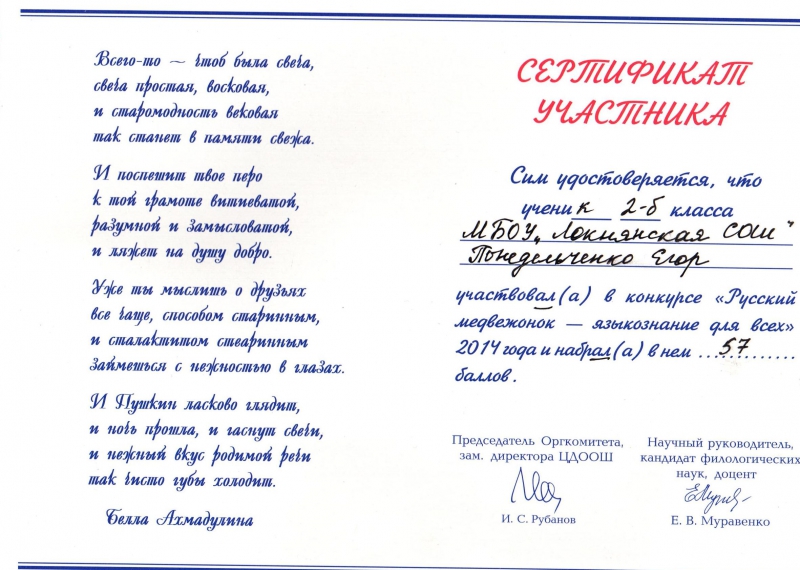 Всего-то ~ чтоб была свеча,
свеча простая, восковая,
и старомодность вековая
так станет в памяти свежа.
И поспешит твое перо
к той грамоте витиеватой,
разумной и замысловатой,
и ляжет на душу добро.
Уже ты мыслишь о друзьях
все чаще, способом старинным,
и сталактитом стеаринным
займешься с нежностью в глазах.
И Пушкин ласково глядит,
и ночь прошла, и гаснут свечи,
и нежный вкус родимой речи
так чисто губы холодит.
Белла Ахмадулина
СЕРТИФИКАТ
УЧАСТНИКА
Сим удостоверяется, что
ученик 2-б класса
МБОУ „Локнянская СОШ"
Понедельченко Егор
участвовал(а) в конкурсе «Русский
медвежонок — языкознание для всех»
2014 года и набрал(а) в нем ...57...
баллов.
Председатель Оргкомитета,
зам. директора ЦДООШ
И. С. Рубанов
Научный руководитель,
кандидат филологических
наук, доцент
Е. В. Муравенко